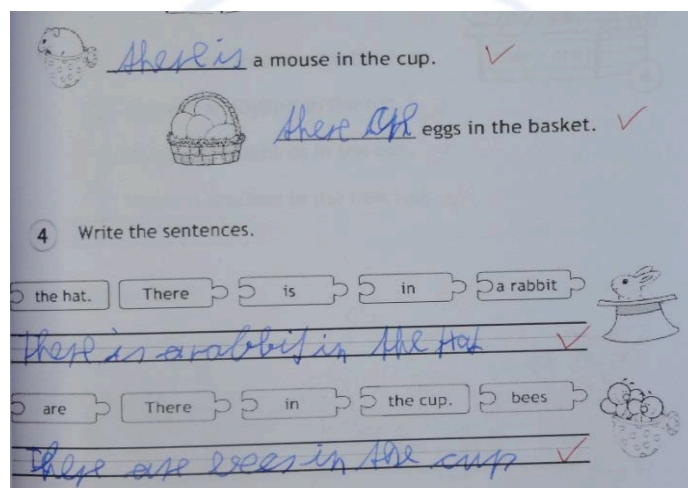 there is a mouse in the cup.
there are eggs in the basket.
4 Write the sentences.
the hat. There is in a rabbit
there is a rabbit in the Hat
are There in the cup. bees
There are bees in the cup